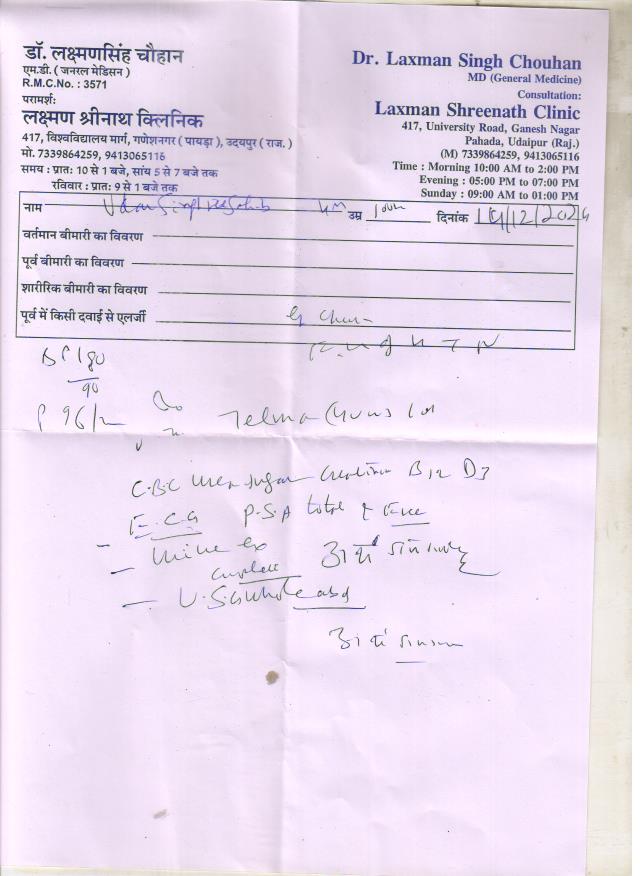 डॉ. लक्ष्मणसिंह चौहान
एम.डी. ( जनरल मेडिसन )
R.M.C.No. : 3571
परामर्शः
लक्ष्मण श्रीनाथ क्लिनिक
417, विश्वविद्यालय मार्ग, गणेशनगर ( पायड़ा ), उदयपुर ( राज. )
मो. 7339864259, 9413065116
समय : प्रातः 10 से 1 बजे, सांय 5 से 7 बजे तक
रविवार : प्रातः 9 से 1 बजे तक
Dr. Laxman Singh Chouhan
MD (General Medicine)
Consultation:
Laxman Shreenath Clinic
417, University Road, Ganesh Nagar
Pahada, Udaipur (Raj.)
(M) 7339864259, 9413065116
Time : Morning 10:00 AM to 2:00 PM
Evening : 05:00 PM to 07:00 PM
Sunday : 09:00 AM to 01:00 PM
नाम उम्र दिनांक 14/12/2024
वर्तमान बीमारी का विवरण
पूर्व बीमारी का विवरण
शारीरिक बीमारी का विवरण
पूर्व में किसी दवाई से एलर्जी
H T N
BP 180
90
P 96/m Telma
C.B.C Urea Sugar Creatinine B12 D3
E.C.G P.S.A total & Free
- Urine ex
complete
- U.S.G whole abd